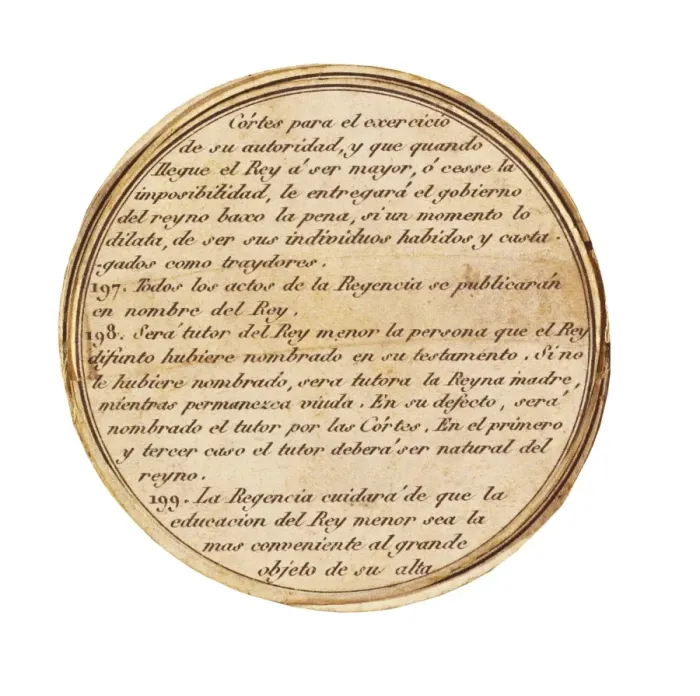 Córtes para el exercicio
de su autoridad, y que quando
llegue el Rey á ser mayor, ó cesse la
imposibilidad, le entregará el gobierno
del reyno baxo la pena, si un momento lo
dilata, de ser sus individuos habidos y casta-
-gados como traydores.
197. Todos los actos de la Regencia se publicarán
en nombre del Rey.
198. Será tutor del Rey menor la persona que el Rey
difunto hubiere nombrado en su testamento. Si no
le hubiere nombrado, sera tutora la Reyna madre,
mientras permanezca viuda. En su defecto, será
nombrado el tutor por las Córtes. En el primero
y tercer caso el tutor deberá ser natural del
reyno.
199. La Regencia cuidará de que la
educacion del Rey menor sea la
mas conveniente al grande
objeto de su alta